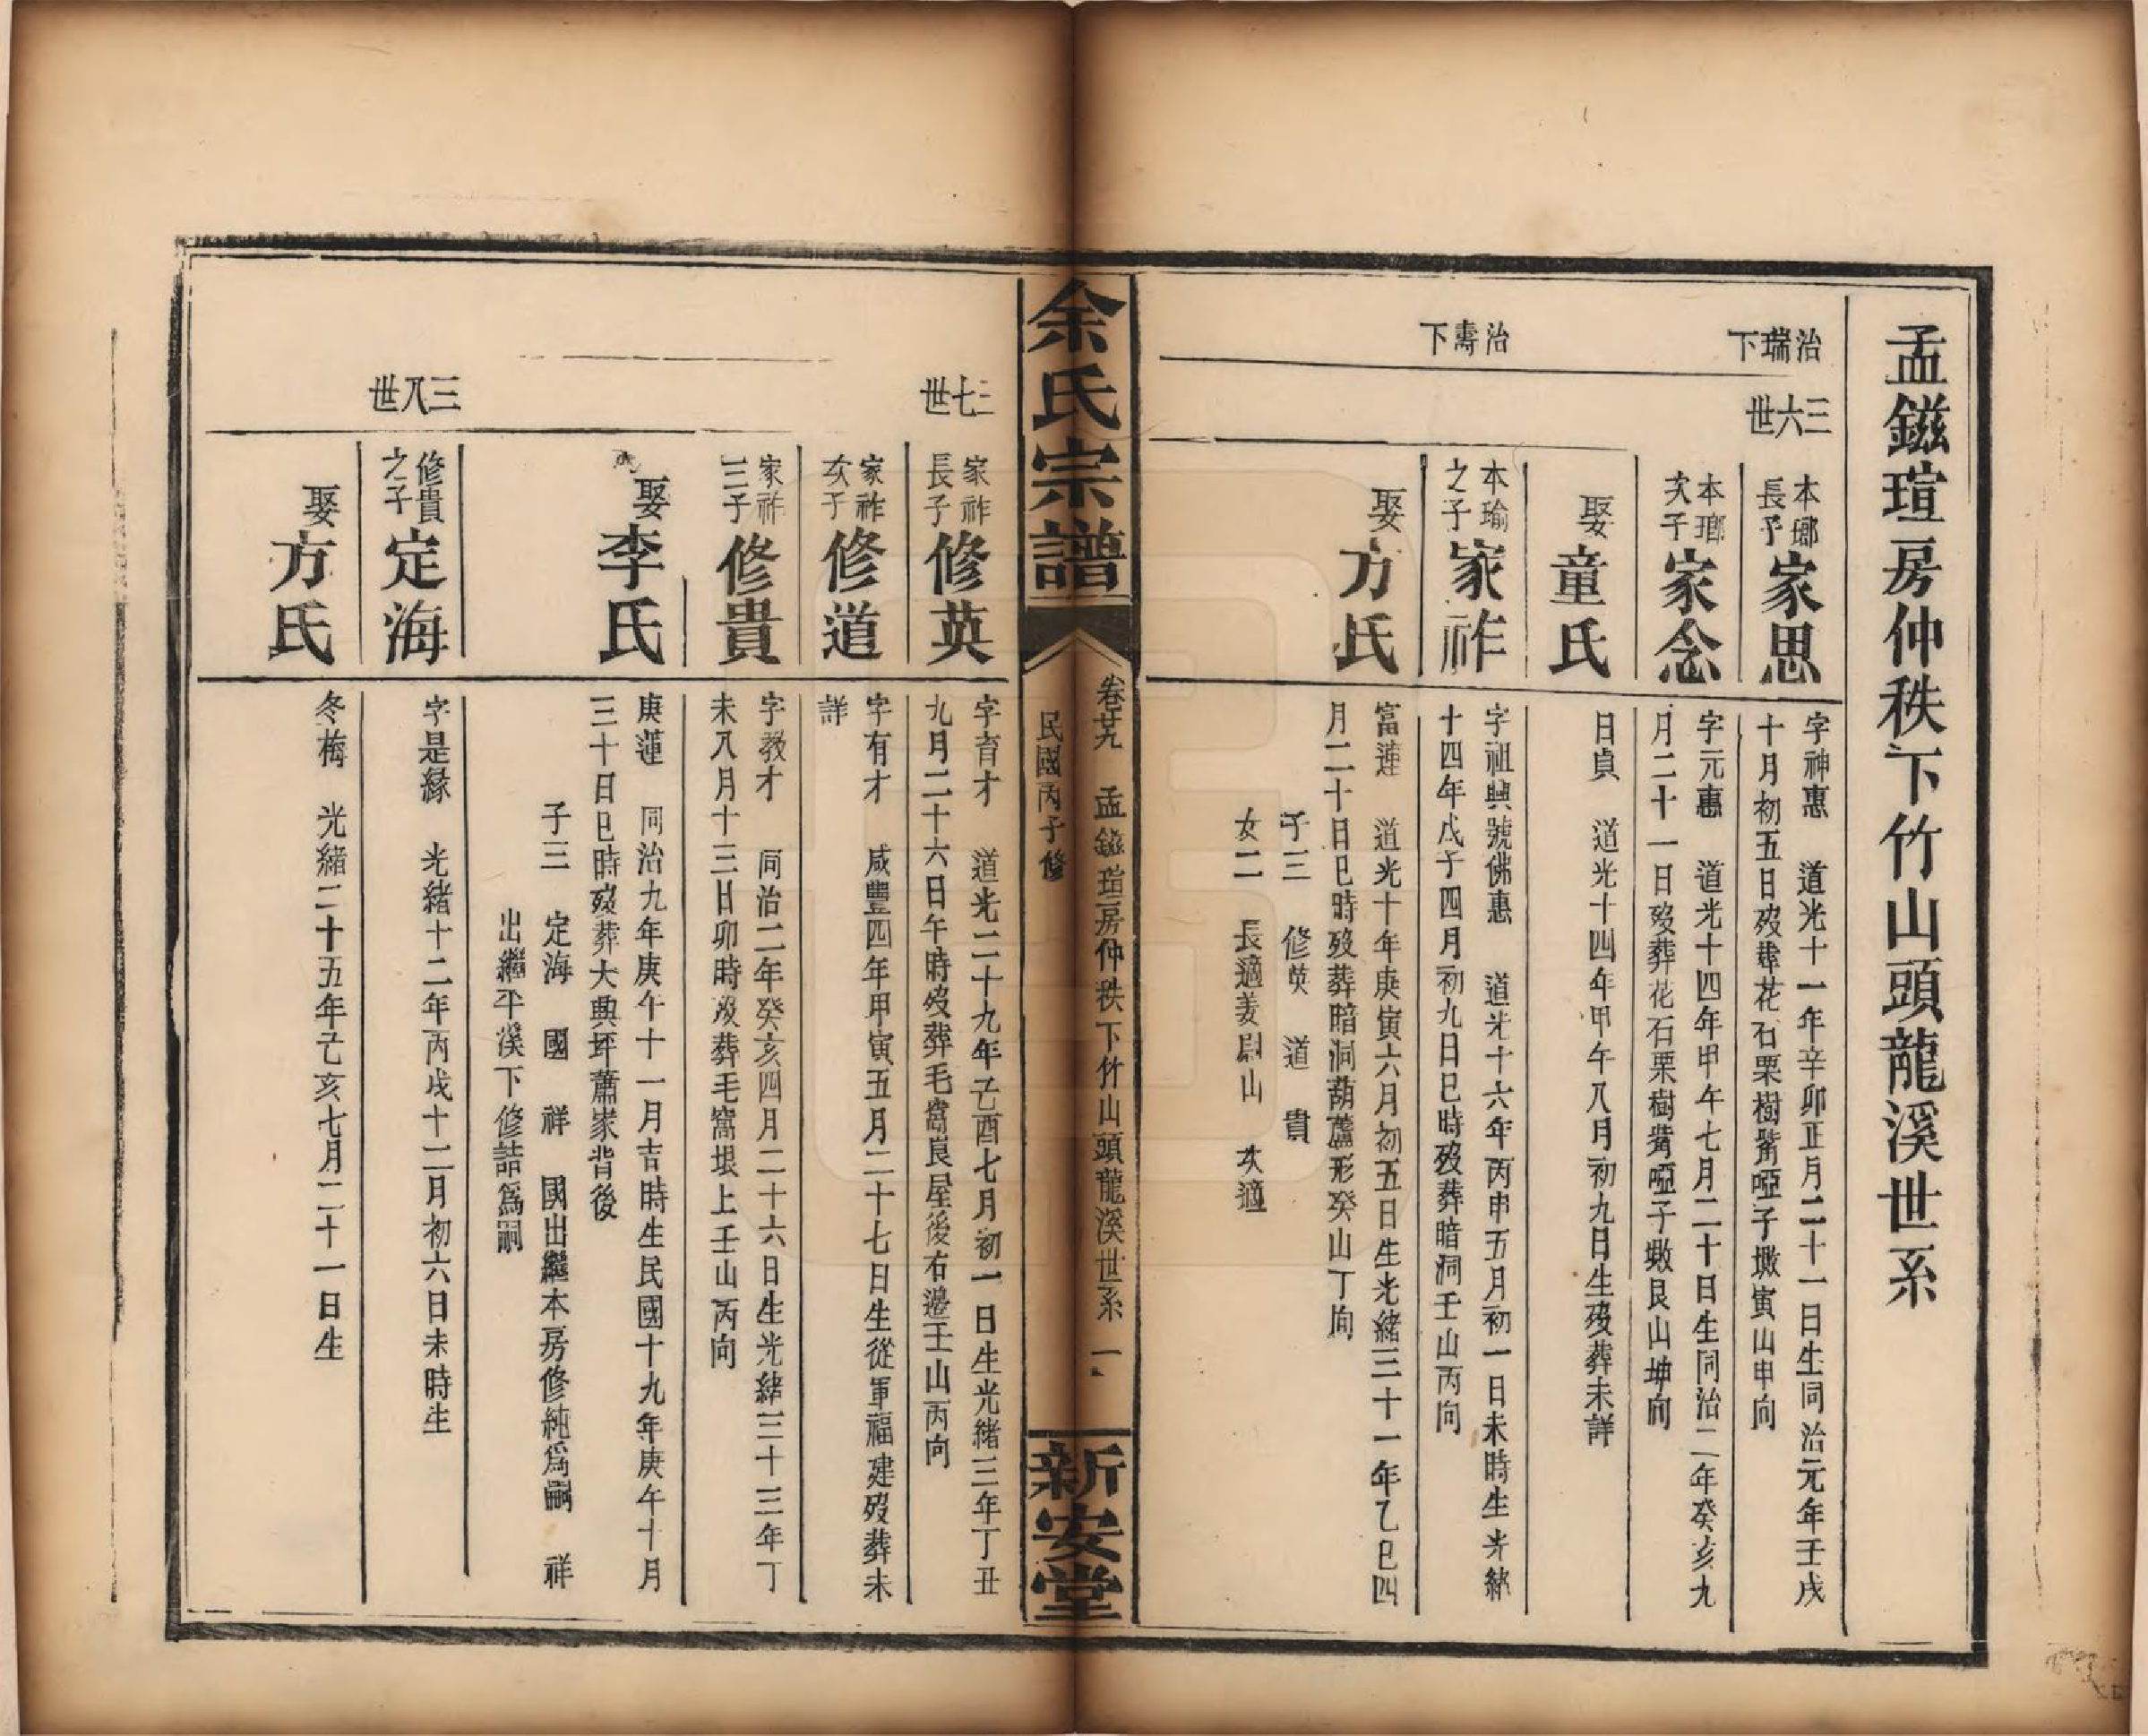 孟鎡瑄房仲秩下竹山頭龍溪世系
治瑞下
三六世
本瑯長子家思
字神惠　道光十一年辛卯正月二十一日生同治元年壬戌
十月初五日歿葬花石栗樹觜啞子墩寅山申向
本瑯次子家念
字元惠　道光十四年甲午七月二十日生同治二年癸亥九
月二十一日歿葬花石栗樹觜啞子墩艮山坤向
娶童氏
日貞　道光十四年甲午八月初九日生歿葬未詳
治壽下
本瑜之子家祚
字祖興號佛惠　道光十六年丙申五月初一日未時生光緒
十四年戊子四月初九日巳時歿葬暗洞壬山丙向
娶方氏
富蓮　道光十年庚寅六月初五日生光緒三十一年乙巳四
月二十日巳時歿葬暗洞葫蘆形癸山丁向
子三　修英　道　貴
女二　長適姜尉山　次適
余氏宗譜
卷廿九　孟鎡瑄房仲秩下竹山頭龍溪世系　一
民國丙子修
新安堂
三七世
家祚長子修英
字育才　道光二十九年己酉七月初一日生光緒三年丁丑
九月二十六日午時歿葬毛窩良屋後右邊壬山丙向
家祚次子修道
字有才　咸豐四年甲寅五月二十七日生從軍福建歿葬未
詳
家祚三子修貴
字教才　同治二年癸亥四月二十六日生光緒三十三年丁
未八月十三日卯時歿葬毛窩垠上壬山丙向
娶李氏
庚蓮　同治九年庚午十一月吉時生民國十九年庚午十月
三十日巳時歿葬大興坪蕭家背後
子三　定海　國　祥　國出繼本房修純爲嗣　祥
出繼平溪下修詰爲嗣
三八世
修貴之子定海
字是緣　光緒十二年丙戌十二月初六日未時生
娶方氏
冬梅　光緒二十五年己亥七月二十一日生